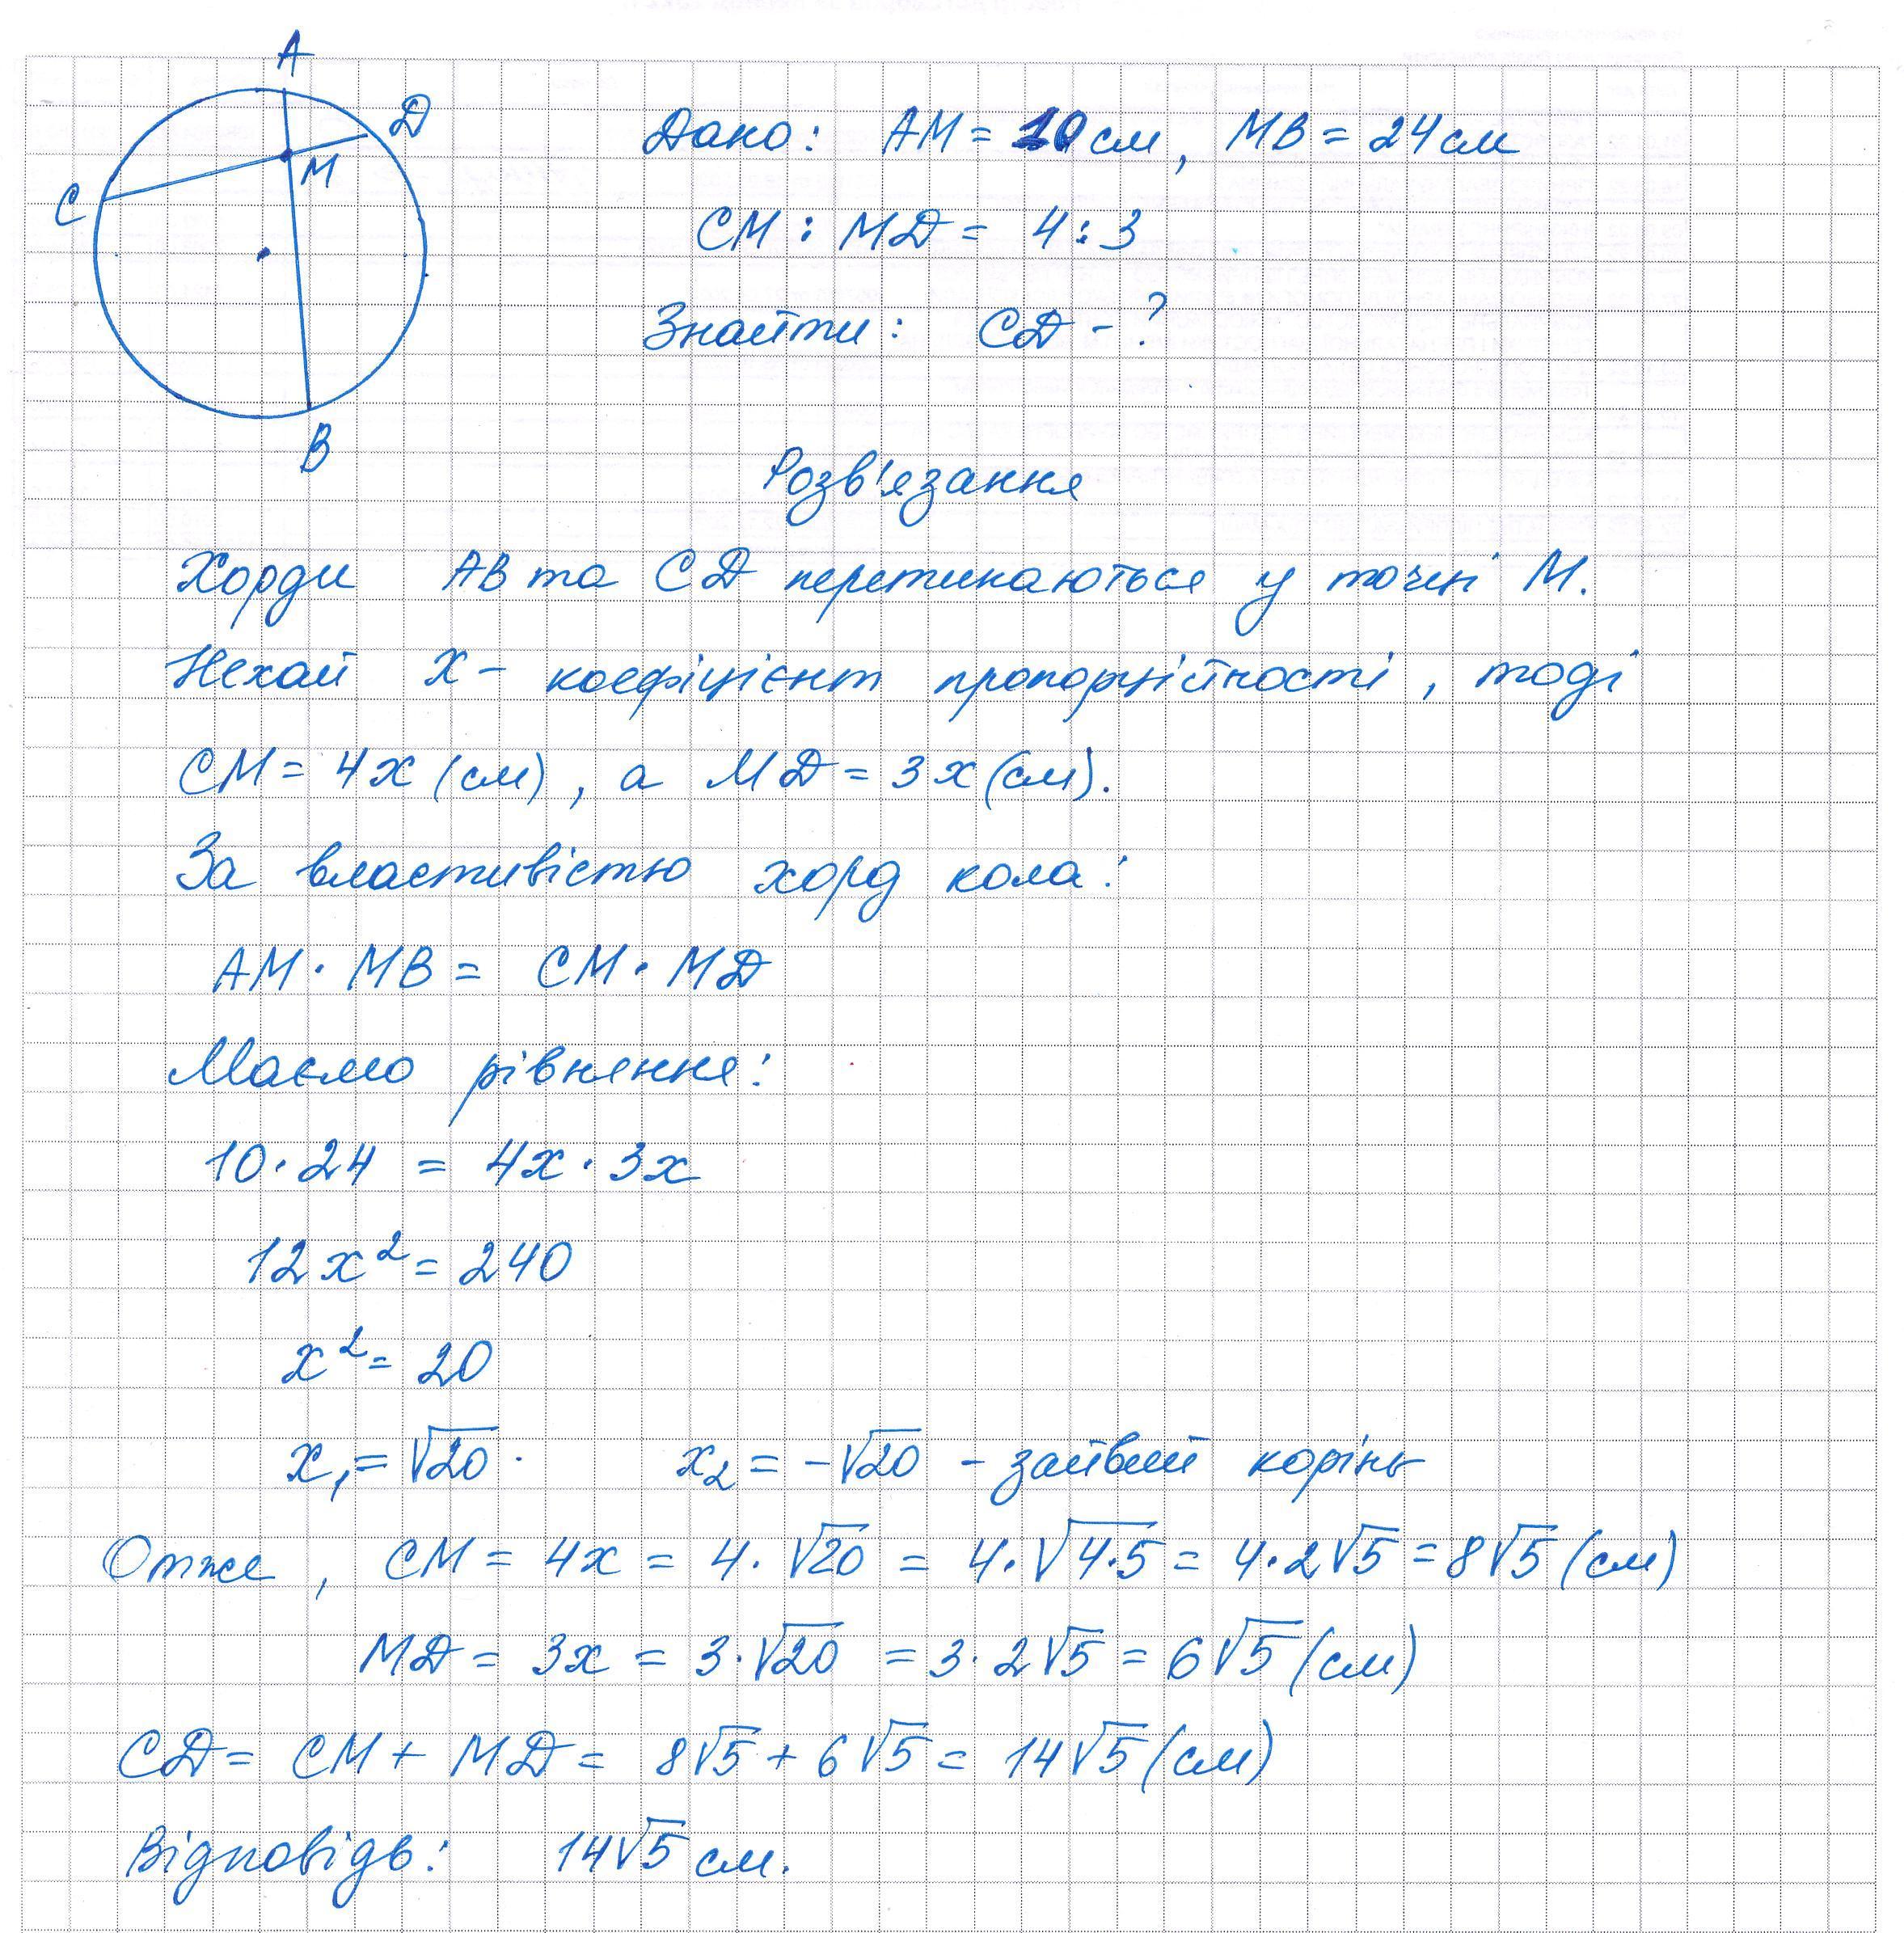 A
D
M
C
B
Дано: AM = 10 см, MB = 24 см
CM : MD = 4 : 3
Знайти: CD - ?
Розв'язання
Хорди AB та CD перетинаються у точці M.
Нехай x - коефіцієнт пропорційності, тоді
CM = 4x (см), а MD = 3x (см).
За властивістю хорд кола:
AM · MB = CM · MD
Маємо рівняння:
10 · 24 = 4x · 3x
12x² = 240
x² = 20
x₁ = √20 . x₂ = -√20 - зайвий корінь
Отже, CM = 4x = 4 · √20 = 4 · √4·5 = 4 · 2√5 = 8√5 (см)
MD = 3x = 3 · √20 = 3 · 2√5 = 6√5 (см)
CD = CM + MD = 8√5 + 6√5 = 14√5 (см)
Відповідь: 14√5 см.